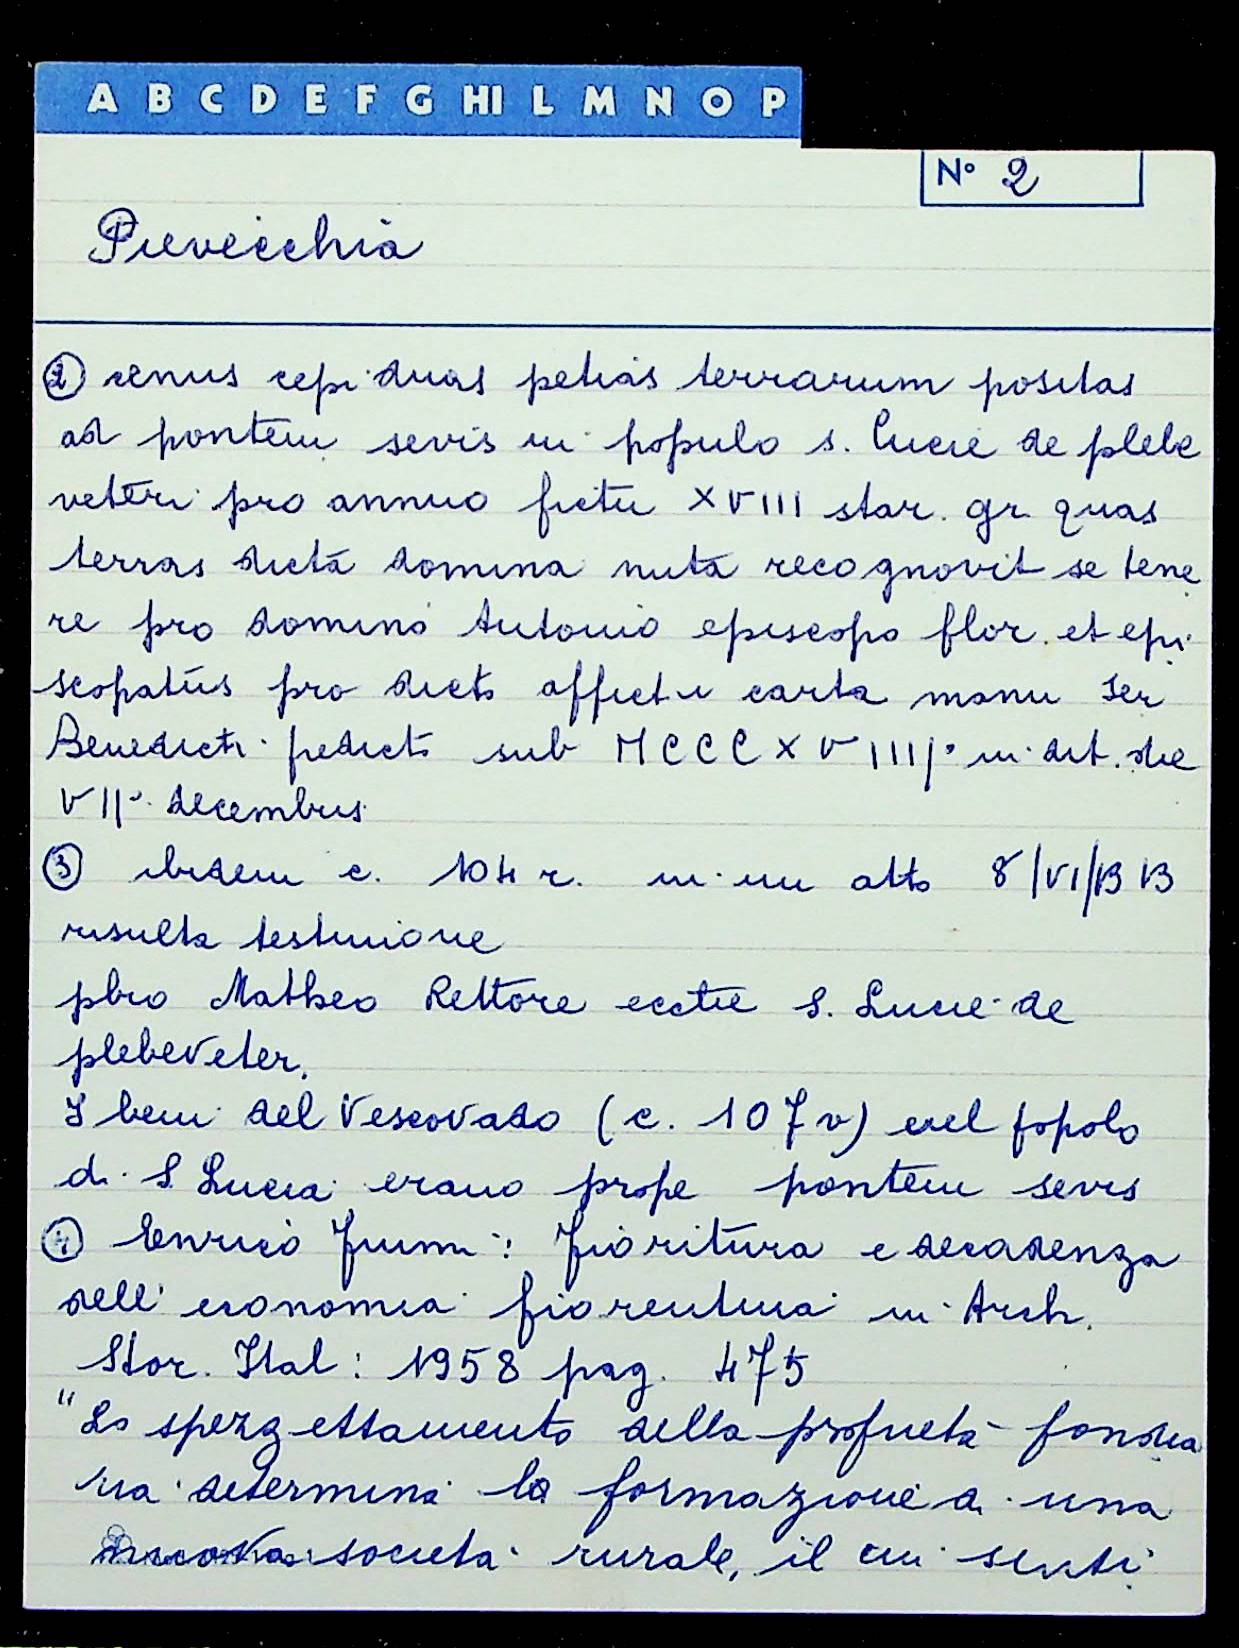 A B C D E F G HI L M N O P
N° 2
Pievecchia
② renus cepi duas petias terrarum positas
ad pontem sevis in populo s. Lucie de plebe
veteri pro annuo fictu XVIII star. gr. quas
terras dicta domina nuta recognovit se tene
re pro domino Antonio episcopo flor. et epi
scopatus pro dicto affictu carta manu Ser
Benedicti pedicto sub MCCCXVIIII° indit. die
VII° decembris
③ ibidem c. 104 r. in un atto 8/VI/1313
risulta testimone
pbro Matheo Rettore ecctie S. Lucie de
plebeveter.
I beni del Vescovado (c. 107 v) nel popolo
di S. Lucia erano prope pontem sevis
④ Enrico Fiumi: Fioritura e decadenza
dell'economia fiorentina in Arch.
Stor. Ital: 1958 pag. 475
"Lo spezzettamento della proprietà fondia
ria determina la formazione di una
nuova società rurale, il cui senti